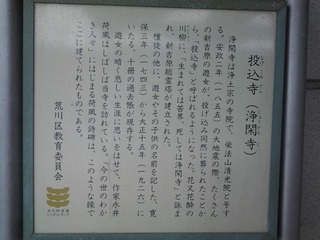 投込寺（浄閑寺）
浄閑寺は浄土宗の寺院で、栄法山清光院と号す
る。安政二年（一八五五）の大地震の際、たくさん
の新吉原の遊女が、投げ込み同然に葬られたことか
ら「投込寺」と呼ばれるようになった。花又花酔の
川柳に、「生まれては苦界、死しては浄閑寺」と詠ま
れ、新吉原総霊塔が建立された。
檀徒の他に、遊女やその子供の名前を記した、寛
保三年（一七四三）から大正十五年（一九二六）に
いたる、十冊の過去帳が現存する。
遊女の暗く悲しい生涯に思いをはせて、作家永井
荷風はしばしば当寺を訪れている。「今の世のわか
き人々」にはじまる荷風の詩碑は、このような縁で
ここに建てられたものである。
荒川区教育委員会